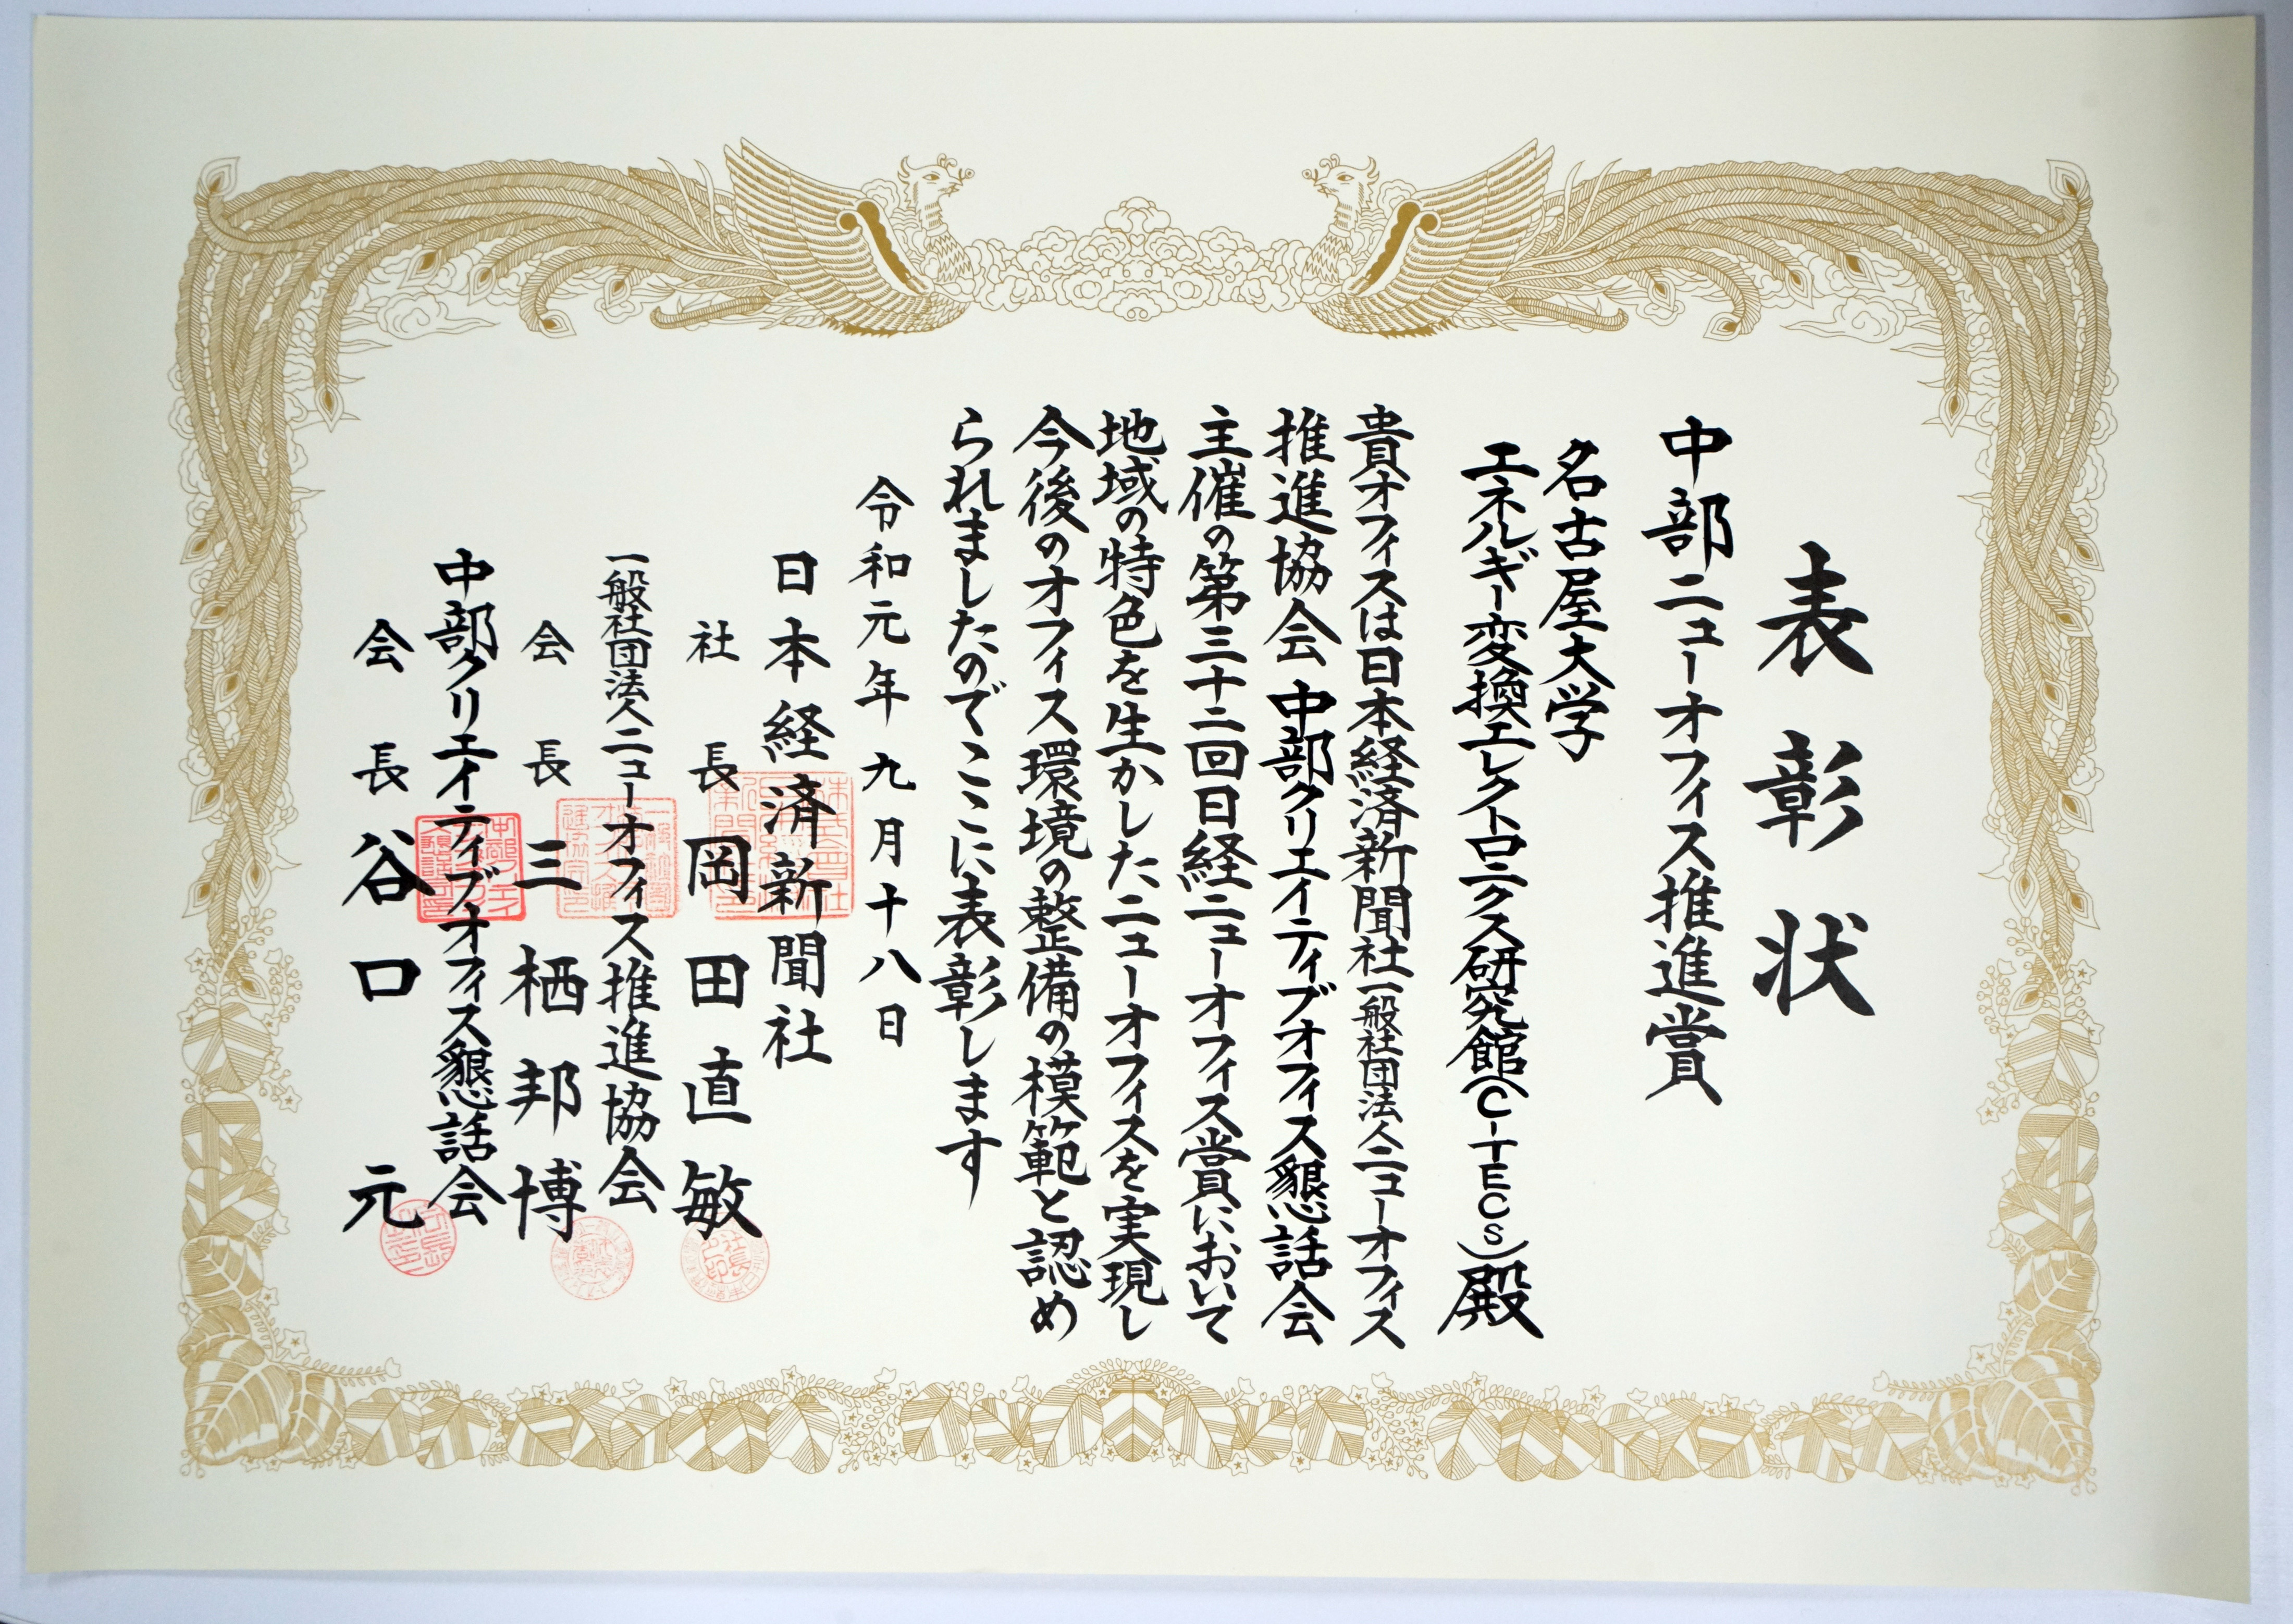 表彰状
中部ニューオフィス推進賞
名古屋大学
エネルギー変換エレクトロニクス研究館(C-TECs)殿
貴オフィスは日本経済新聞社一般社団法人ニューオフィス
推進協会 中部クリエイティブオフィス懇話会
主催の第三十二回日経ニューオフィス賞において
地域の特色を生かしたニューオフィスを実現し
今後のオフィス環境の整備の模範と認め
られましたのでここに表彰します
令和元年九月十八日
日本経済新聞社
社長 岡田直敏
一般社団法人ニューオフィス推進協会
会長 三栖邦博
中部クリエイティブオフィス懇話会
会長 谷口元